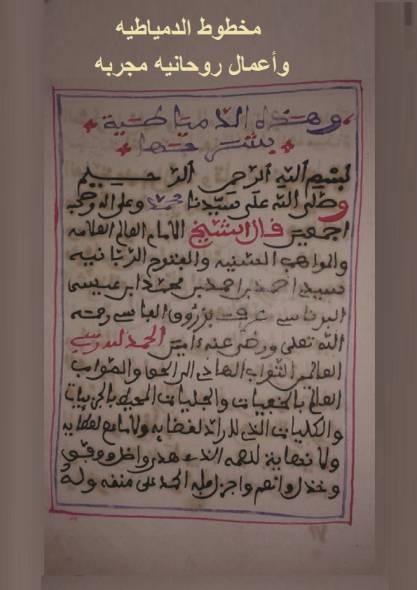 مخطوط الدمياطيه
وأعمال روحانيه مجربه
وهذه الدمياطية
بشرحها
بسم الله الرحمن الرحيم
وصلى الله على سيدنا محمد وعلى اله وصحبه
اجمعين قال الشيخ الامام العالم العلامه
والمواهب السنيه والعلوم الربانيه
سيدي احمد بن احمد بن محمد ابن عيسى
البرنسي عرف بزروق الفاسي رحمه
الله تعلى ورضي عنه ءامين الحمد لله رب
العالمين التواب الهادي الى الحق والصواب
العالم بالخفيات والجليات المحيط بالجزييات
والكليات الذي لا راد لقضايه ولا مانع لعطايه
ولا نهاية لنعمه الذي هدى واضل ووفق
وخذل وانعم واجزل فله الحمد على منعه وله